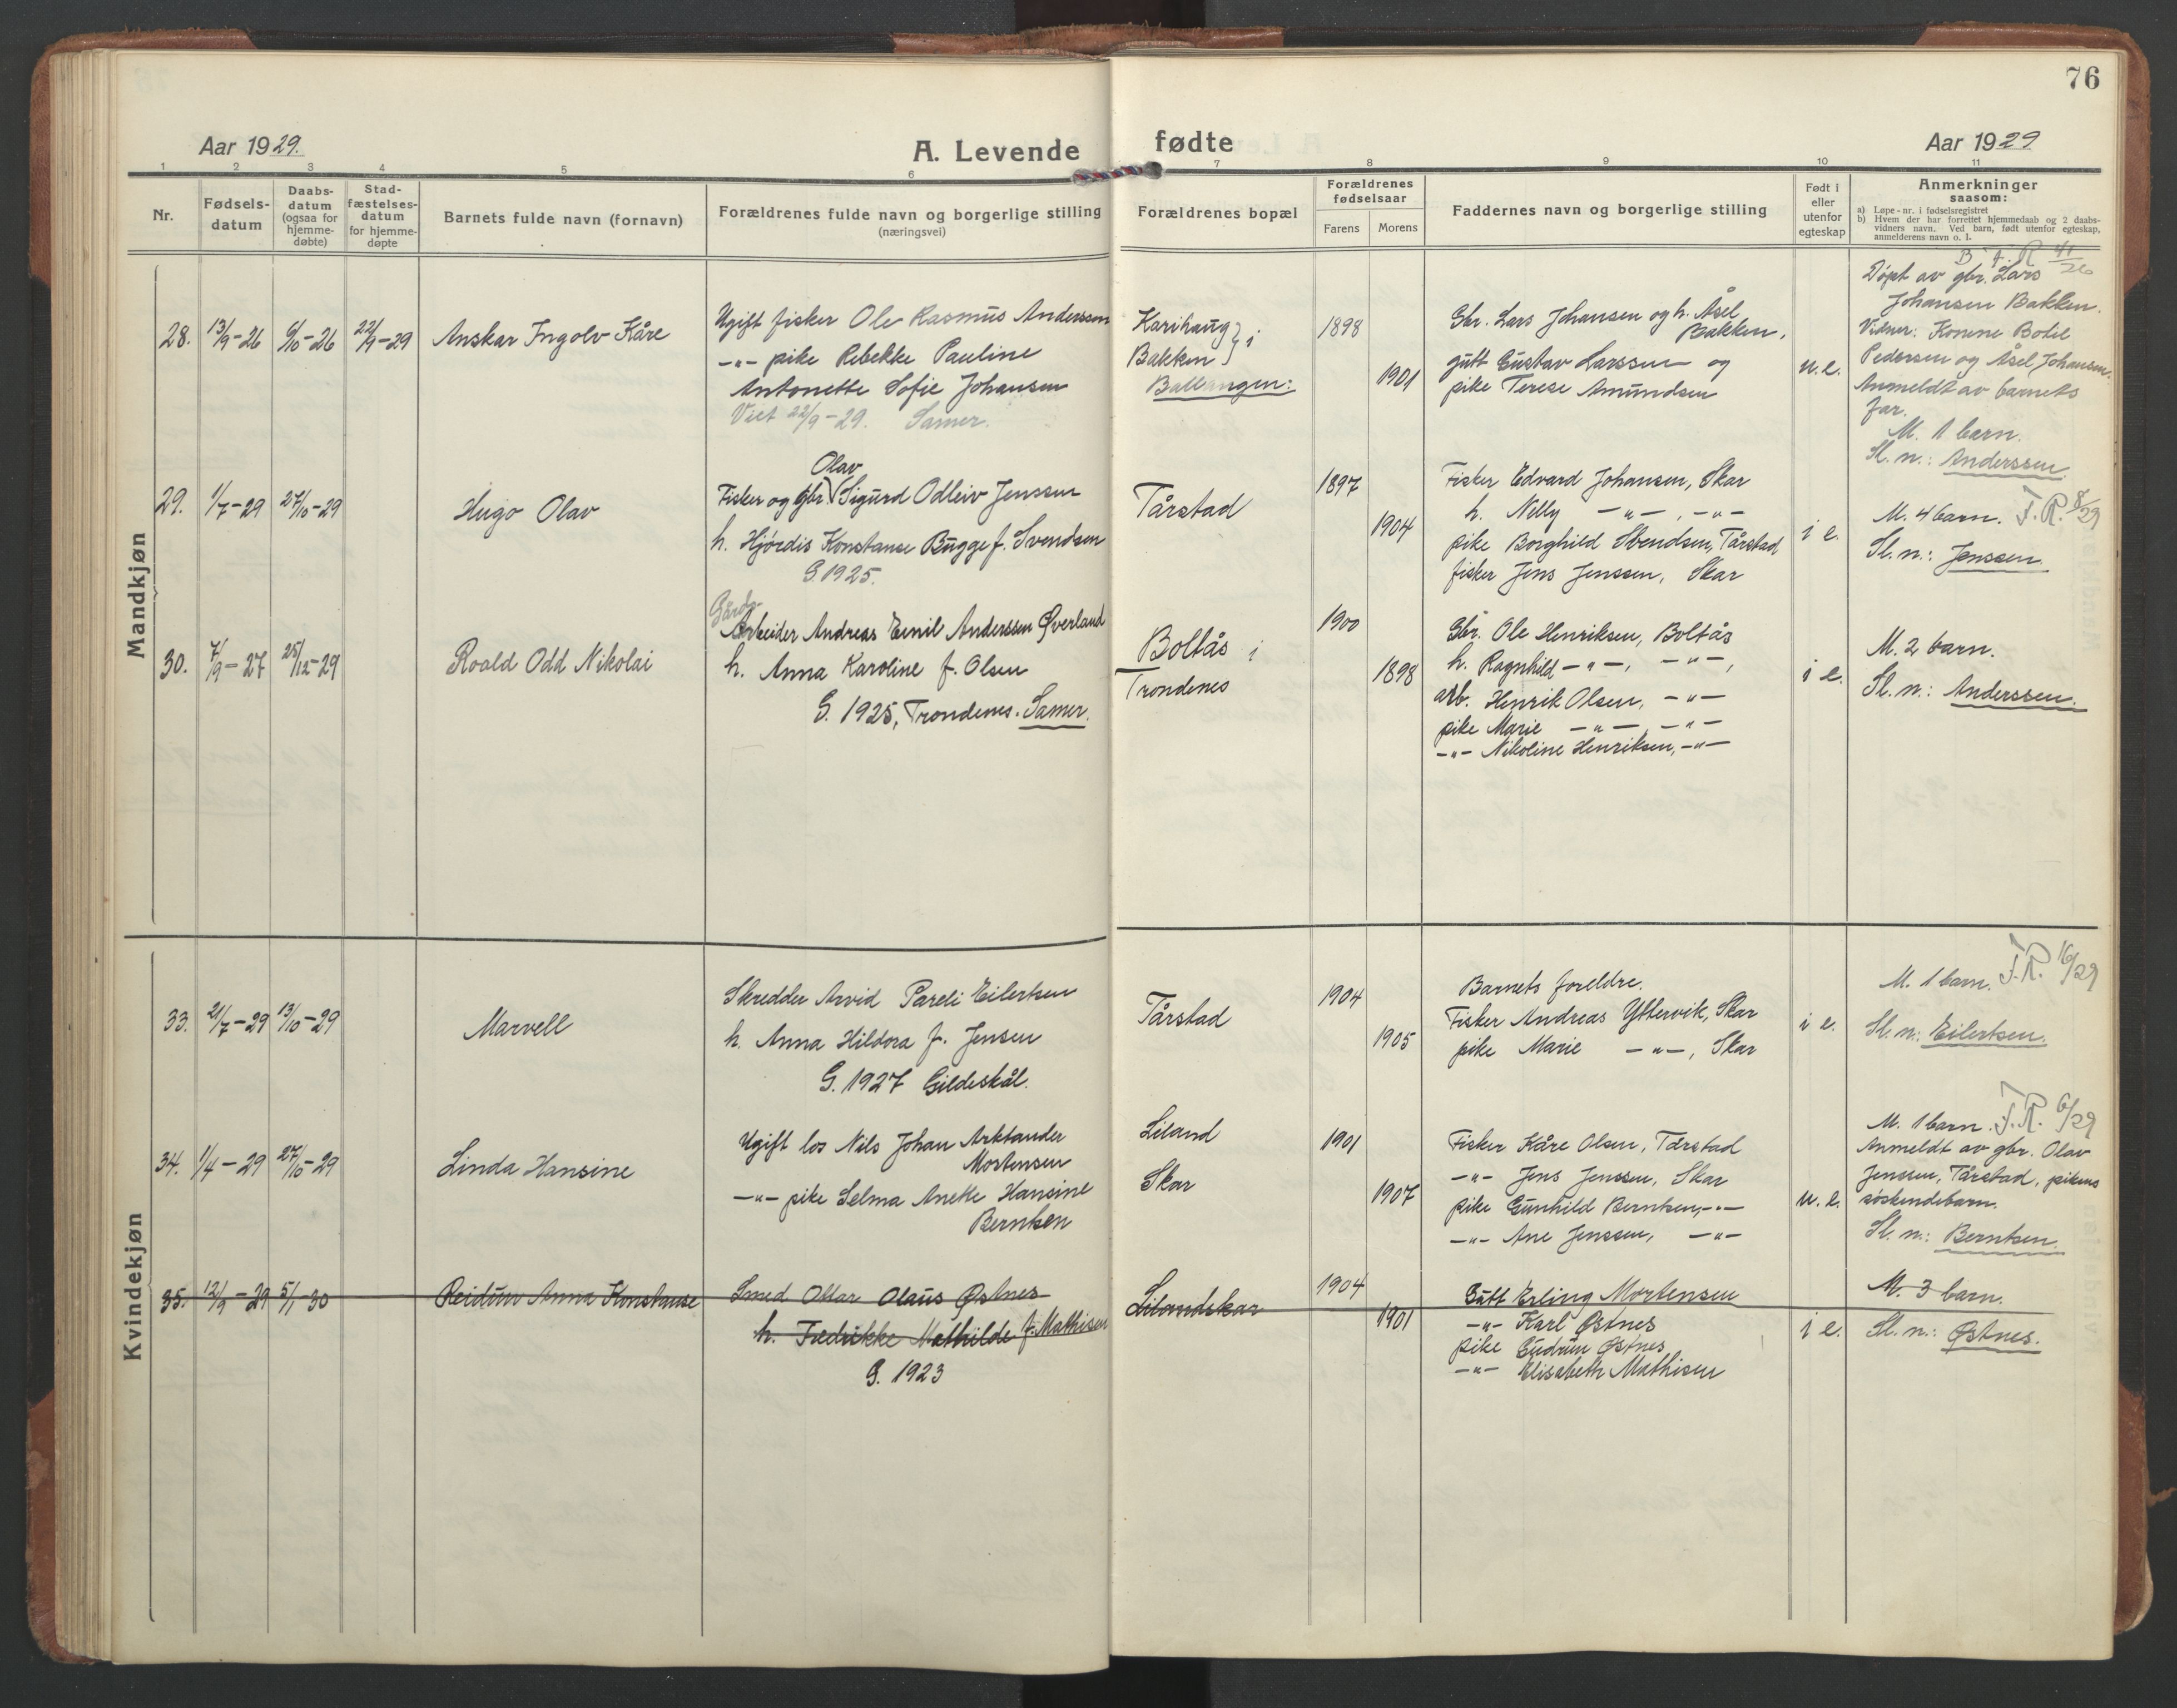 76
Aar 1929.
A. Levende fødte
Aar 1929
1 2 3 4 5 6 7 8 9 10 11
Nr.
Fødsels-
datum
Daabs-
datum
(ogsaa for
hjemme-
døbte)
Stad-
fæstelses-
datum
for hjemme-
døpte
Barnets fulde navn (fornavn)
Forældrenes fulde navn og borgerlige stilling
(næringsvei)
Forældrenes bopæl
Forældrenes
fødselsaar
Farens Morens
Faddernes navn og borgerlige stilling
Født i
eller
utenfor
egteskap
Anmerkninger
saasom:
a) Løpe-nr. i fødselsregistret
b) Hvem der har forrettet hjemmedaab og 2 daabs-
vidners navn. Ved barn, født utenfor egteskap,
anmelderens navn o. l.
Mandkjøn
28. 13/9-26 6/10-26 22/9-29 Anskar Ingolv Kåre
Ugift fisker Ole Rasmus Anderssen
-"- pike Rebekke Pauline
Antonette Sofie Johansen
Viet 22/9-29. Samer.
Karihaug } i
Bakken
Ballangen:
1898
1901
Gbr. Lars Johansen og h. Åsel
Bakken,
gutt Gustav Larssen og
pike Terese Amundsen
u.e.
B. f. R 41/26
Døpt av gbr. Lars
Johansen Bakken.
Vidner: Konene Botel
Pedersen og Åsel Johansen.
Anmeldt av barnets
far.
M. 1 barn.
Sl. n.: Anderssen
29. 1/7-29 27/10-29 Hugo Olav
Olav
Fisker og gbr Sigurd Odleiv Jenssen
h. Hjördis Konstanse Bugge f. Svendsen
G. 1925.
Tårstad
1897
1904
Fisker Edvard Johansen, Skar
h. Nilly -"-, -"-
pike Borghild Svendsen, Tårstad
fisker Jens Jenssen, Skar
i e.
M. 4 barn. F.R. 8/29
Sl. n.: Jenssen.
30. 7/9-27 25/12-29 Roald Odd Nikolai
Gårds-
Arbeider Andreas Emil Anderssen Øverland
h. Anna Karoline f. Olsen
G. 1925, Trondenes. Samer.
Boltås i
Trondenes
1900
1898
Gbr. Ole Henriksen, Boltås
h. Ragnhild -"-, -"-,
arb. Henrik Olsen, -"-
pike Marie -"-, -"-
-"- Nikoline Henriksen, -"-
i e.
M. 2 barn.
Sl. n.: Anderssen.
Kvindekjøn
33. 21/7-29 13/10-29 Marvell
Skredder Arvid Pareli Eilertsen
h. Anna Hildora f. Jensen
G. 1927 Gildeskål.
Tårstad
1904
1905
Barnets foreldre.
Fisker Andreas Yttervik, Skar
pike Marie -"-, Skar
i e.
M. 1 barn. F.R. 16/29
Sl. n.: Eilertsen.
34. 1/4-29 27/10-29 Linda Hansine
Ugift los Nils Johan Arktander
Mortensen
-"- pike Selma Anette Hansine
Berntsen
Liland
Skar
1901
1907
Fisker Kåre Olsen, Tårstad
-"- Jens Jenssen, Skar
pike Gunhild Berntsen, -"-
-"- Ane Jenssen, -"-
u. e.
M. 1 barn. F.R. 6/29
Anmeldt av gbr. Olav
Jenssen, Tårstad, pikens
söskendebarn.
Sl. n.: Berntsen.
35. 12/9-29 5/1-30 Reidun Anna Konstanse
Smed Ottar Olaus Østnes
h. Fredrikke Mathilde f. Mathisen
G. 1923
Lilandskar
1904
1901
Gutt Erling Mortensen
-"- Karl Østnes
pike Gudrun Østnes
-"- Elisabeth Mathisen
i e.
M. 3 barn.
Sl. n.: Østnes.